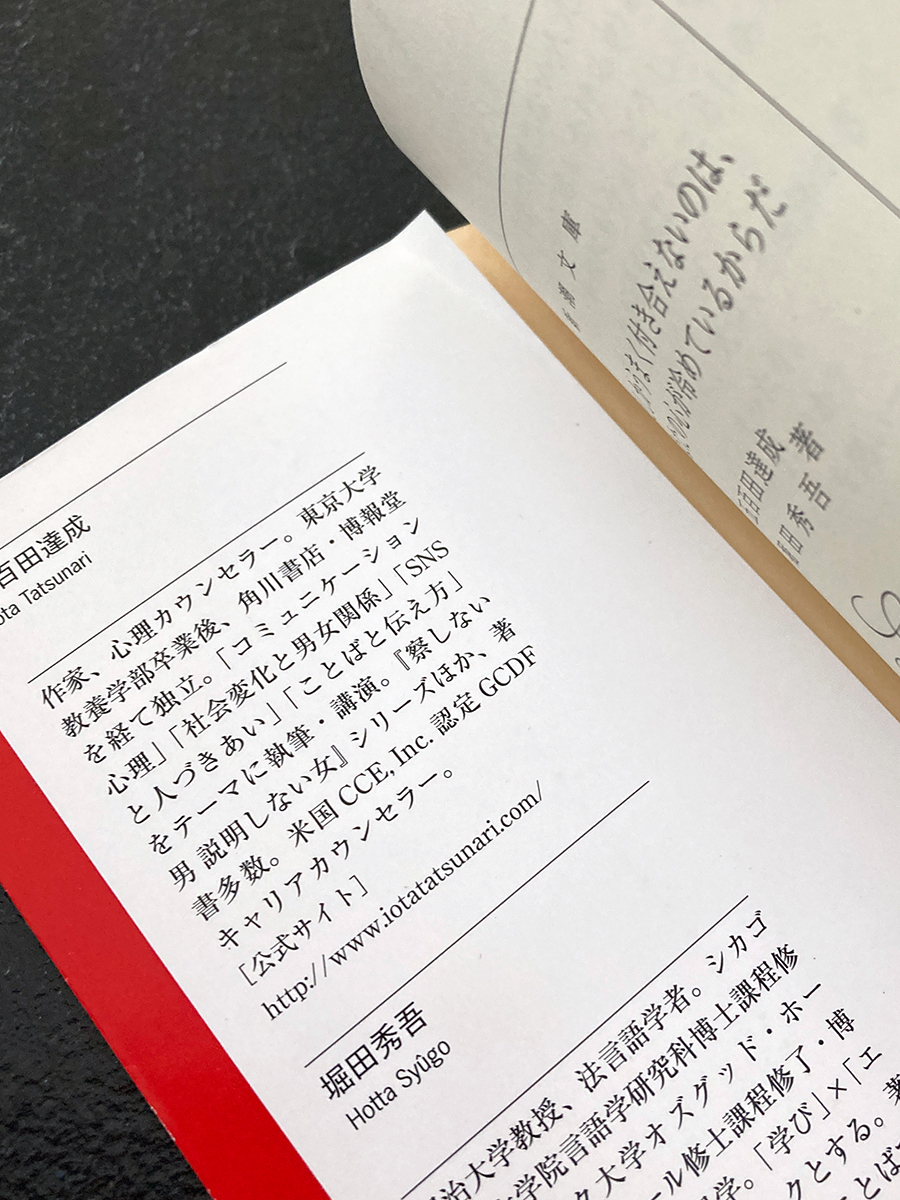 百田達成
ota Tatsunari
作家、心理カウンセラー。東京大学
教養学部卒業後、角川書店・博報堂
を経て独立。「コミュニケーション
心理」「社会変化と男女関係」「SNS
と人づきあい」「ことばと伝え方」
をテーマに執筆・講演。『察しない
男 説明しない女』シリーズほか、著
書多数。米国CCE, Inc. 認定GCDF
キャリアカウンセラー。
［公式サイト］
http://www.iotatatsunari.com/
堀田秀吾
Hotta Syûgo
治大学教授、法言語学者。シカゴ
学院言語学研究科博士課程修
ク大学オズグッド・ホー
ール修士課程修了・博
学。「学び」×「エ
クとする。著
とば
潮文庫
まく付き合えないのは、
が冷めているからだ
百田達成
田秀吾 著